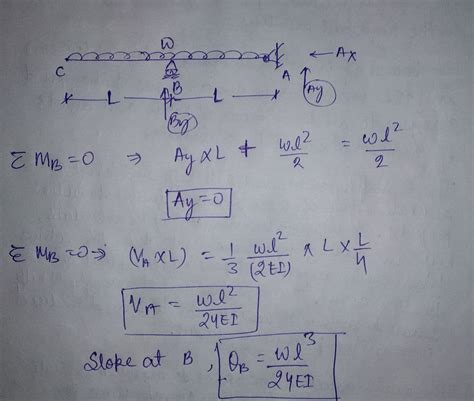 W
C A ← Ax
L B L Ay
By
Σ M_B = 0 ⇒ Ay × L + wl²/2 = wl²/2
Ay = 0
Σ M_B = 0 ⇒ (V_A × L) = 1/3 wl²/(2EI) × L × L/4
V_A = wl²/24EI
Slope at B, θ_B = wl³/24EI